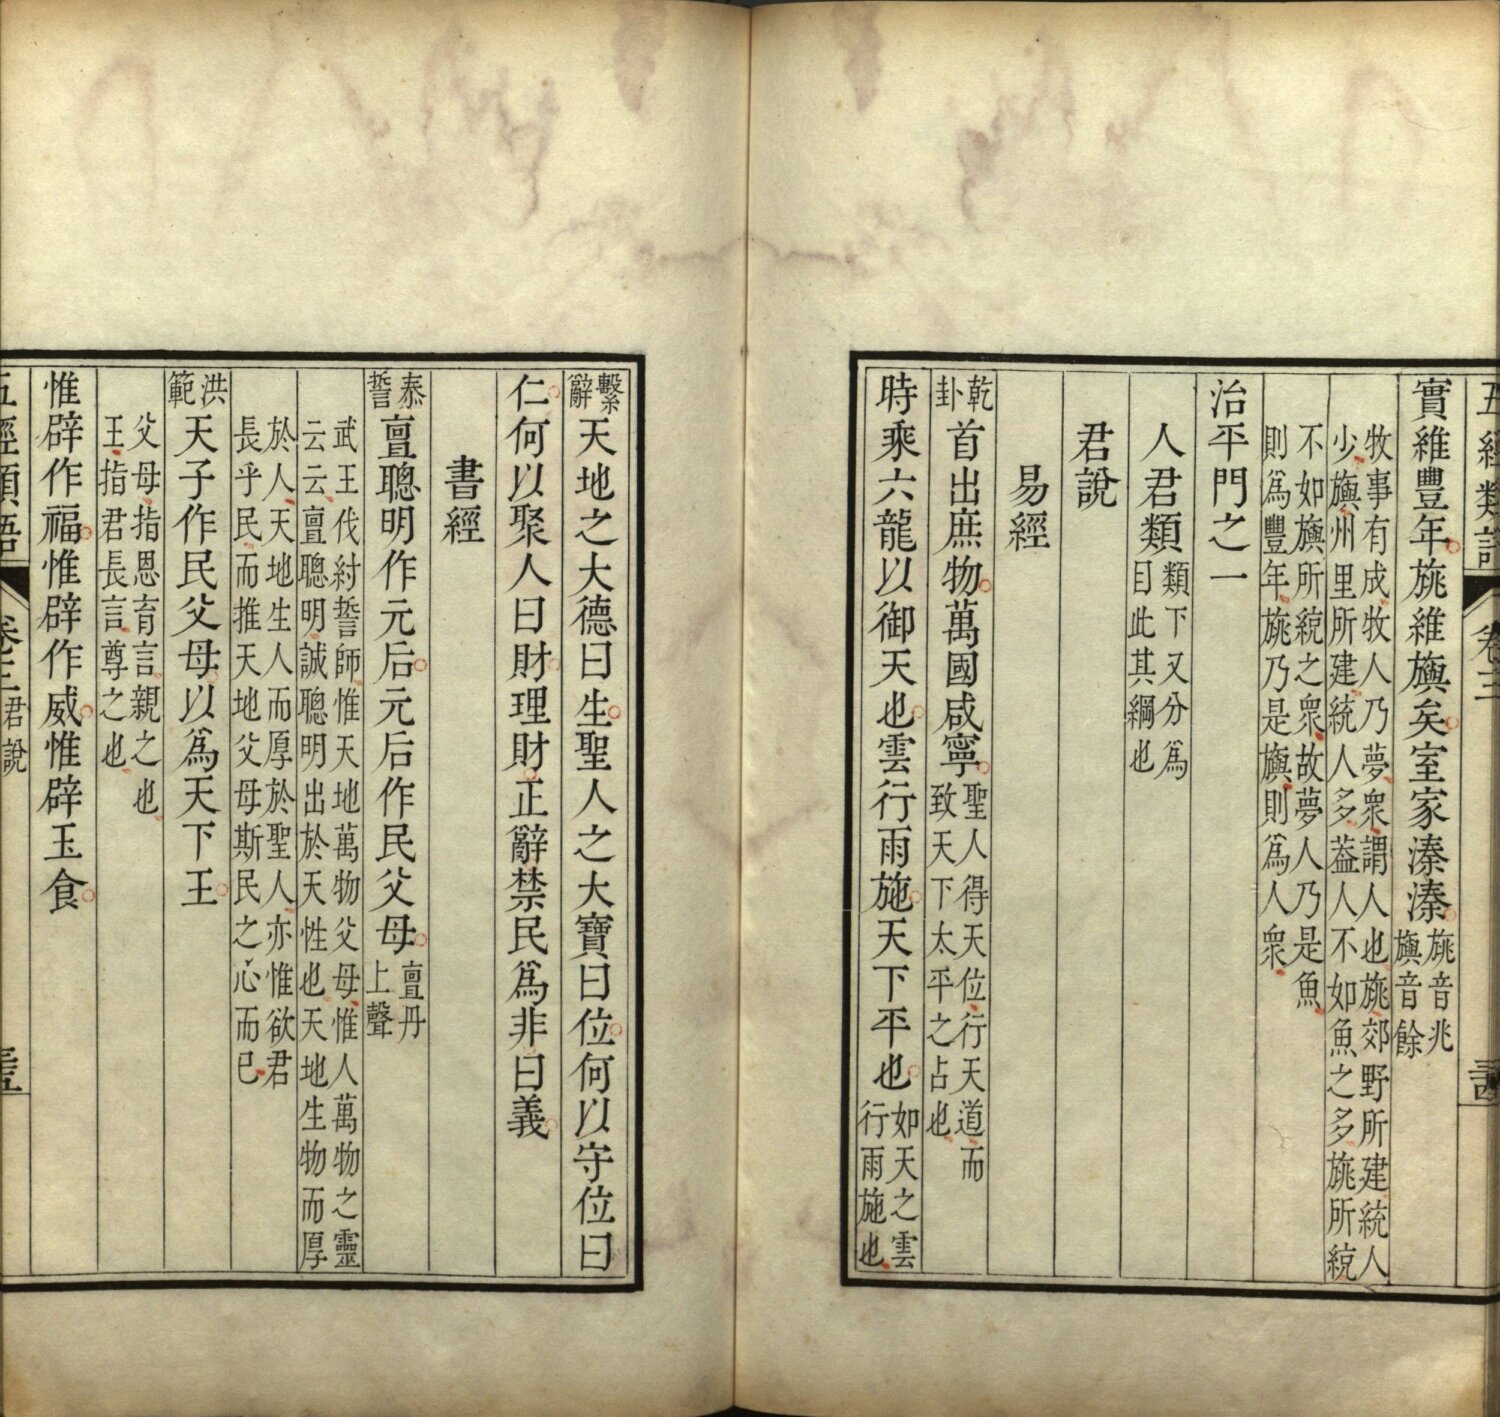 五經類語 卷三 三十四
實維豐年旐維旟矣室家溱溱旐音兆旟音餘
牧事有成牧人乃夢衆謂人也旐郊野所建統人
少旟州里所建統人多葢人不如魚之多旐所統
不如旟所統之衆故夢人乃是魚
則爲豐年旐乃是旟則爲人衆
治平門之一
人君類類下又分爲目此其綱也
君說
易經
乾卦首出庶物萬國咸寧聖人得天位行天道而致天下太平之占也
時乘六龍以御天也雲行雨施天下平也如天之雲行雨施也
繫辭天地之大德曰生聖人之大寶曰位何以守位曰
仁何以聚人曰財理財正辭禁民爲非曰義
書經
泰誓亶聰明作元后元后作民父母亶丹上聲
武王伐紂誓師惟天地萬物父母惟人萬物之靈
云云亶聰明誠聰明出於天性也天地生物而厚
於人天地生人而厚於聖人亦惟欲君
長乎民而推天地父母斯民之心而已
洪範天子作民父母以爲天下王
父母指恩育言親之也
王指君長言尊之也
惟辟作福惟辟作威惟辟玉食
五經類語 卷三 君說 三十五